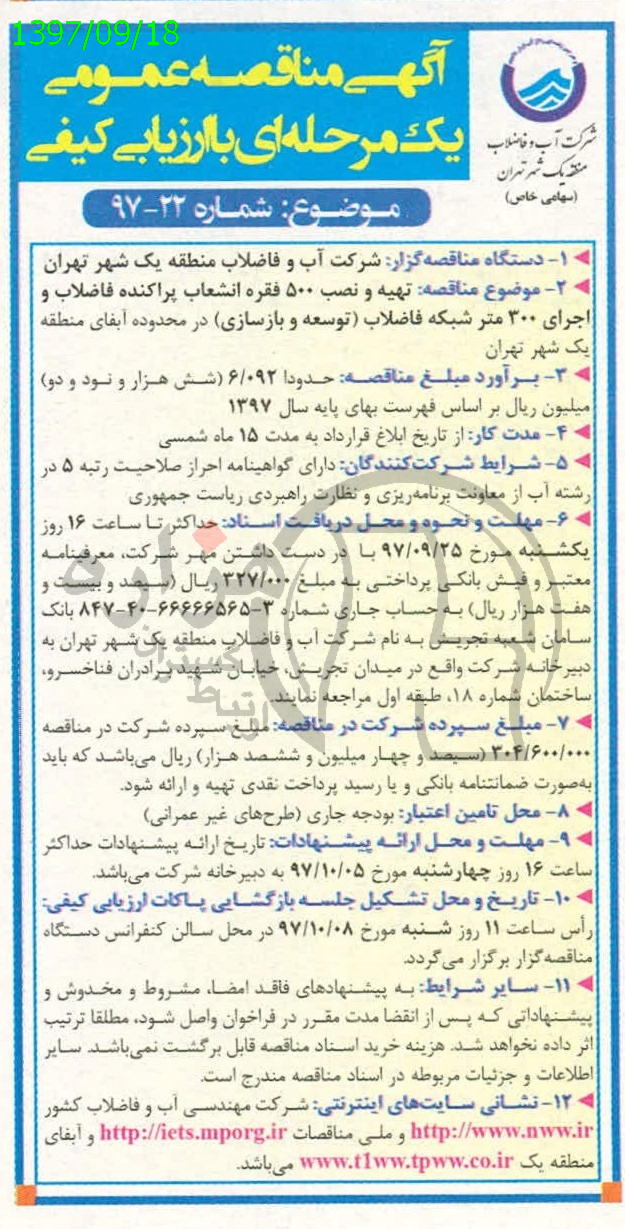 1397/09/18
آگهـی مناقصـه عمـومی
یک مرحله‌ای با ارزیابی کیفی
شرکت آب و فاضلاب
منطقه یک شهر تهران
(سهامی خاص)
مـوضـوع: شمـاره ۲۲-۹۷
۱- دستگاه مناقصه‌گزار: شرکت آب و فاضلاب منطقه یک شهر تهران
۲- موضوع مناقصه: تهیه و نصب ۵۰۰ فقره انشعاب پراکنده فاضلاب و
اجرای ۳۰۰ متر شبکه فاضلاب (توسعه و بازسازی) در محدوده آبفای منطقه
یک شهر تهران
۳- بـرآورد مبلـغ مناقصـه: حـدودا ۶/۰۹۲ (شش هـزار و نـود و دو)
میلیون ریال بر اساس فهرست بهای پایه سال ۱۳۹۷
۴- مدت کار: از تاریخ ابلاغ قرارداد به مدت ۱۵ ماه شمسی
۵- شـرایط شـرکت‌کنندگان: دارای گواهینامه احراز صلاحیـت رتبه ۵ در
رشته آب از معاونت برنامه‌ریزی و نظارت راهبردی ریاست جمهوری
۶- مهلـت و نحـوه و محـل دریافـت اسـناد: حداکثر تـا ساعت ۱۶ روز
یکشـنبه مـورخ ۹۷/۰۹/۲۵ بـا در دسـت داشـتن مهـر شـرکت، معرفینامـه
معتبـر و فیـش بانکـی پرداختـی بـه مبلـغ ۳۲۷/۰۰۰ ریـال (سـیصد و بیسـت و
هفـت هـزار ریال) بـه حسـاب جـاری شمـاره ۳-۶۶۶۶۶۵۶۵-۴۰-۸۴۷ بانک
سـامان شـعبه تجریـش بـه نام شـرکت آب و فاضلاب منطقه یک شهر تهران به
دبیرخانـه شـرکت واقـع در میـدان تجریـش، خیابـان شـهید بـرادران فناخسـرو،
ساختمان شماره ۱۸، طبقه اول مراجعه نمایند
۷- مبلـغ سـپرده شـرکت در مناقصه: مبلـغ سـپرده شرکت در مناقصه
۳۰۴/۶۰۰/۰۰۰ (سـیصد و چهـار میلیـون و ششـصد هـزار) ریال می‌باشد که باید
به‌صورت ضمانتنامه بانکی و یا رسید پرداخت نقدی تهیه و ارائه شود.
۸- محل تامین اعتبار: بودجه جاری (طرح‌های غیر عمرانی)
۹- مهلـت و محـل ارائـه پیشـنهادات: تاریـخ ارائـه پیشـنهادات حداکثر
ساعت ۱۶ روز چهارشنبه مورخ ۹۷/۱۰/۰۵ به دبیرخانه شرکت می‌باشد.
۱۰- تاریـخ و محل تشـکیل جلسـه بازگشـایی پـاکات ارزیابی کیفی:
رأس سـاعت ۱۱ روز شـنبه مورخ ۹۷/۱۰/۰۸ در محل سـالن کنفرانس دسـتگاه
مناقصه‌گزار برگزار می‌گردد.
۱۱- سـایر شـرایط: بـه پیشـنهادهای فاقـد امضـا، مشـروط و مخـدوش و
پیشـنهاداتی کـه پـس از انقضا مدت مقـرر در فراخوان واصل شـود، مطلقا ترتیب
اثر داده نخواهد شـد. هزینه خرید اسـناد مناقصه قابل برگشـت نمی‌باشـد. سـایر
اطلاعات و جزئیات مربوطه در اسناد مناقصه مندرج است.
۱۲- نشـانی سـایت‌های اینترنتی: شـرکت مهندسـی آب و فاضلاب کشور
http://www.nww.ir و ملـی مناقصات http://iets.mporg.ir و آبفای
منطقه یک www.t1ww.tpww.co.ir می‌باشد.
هزاره
گستران
ارتباط